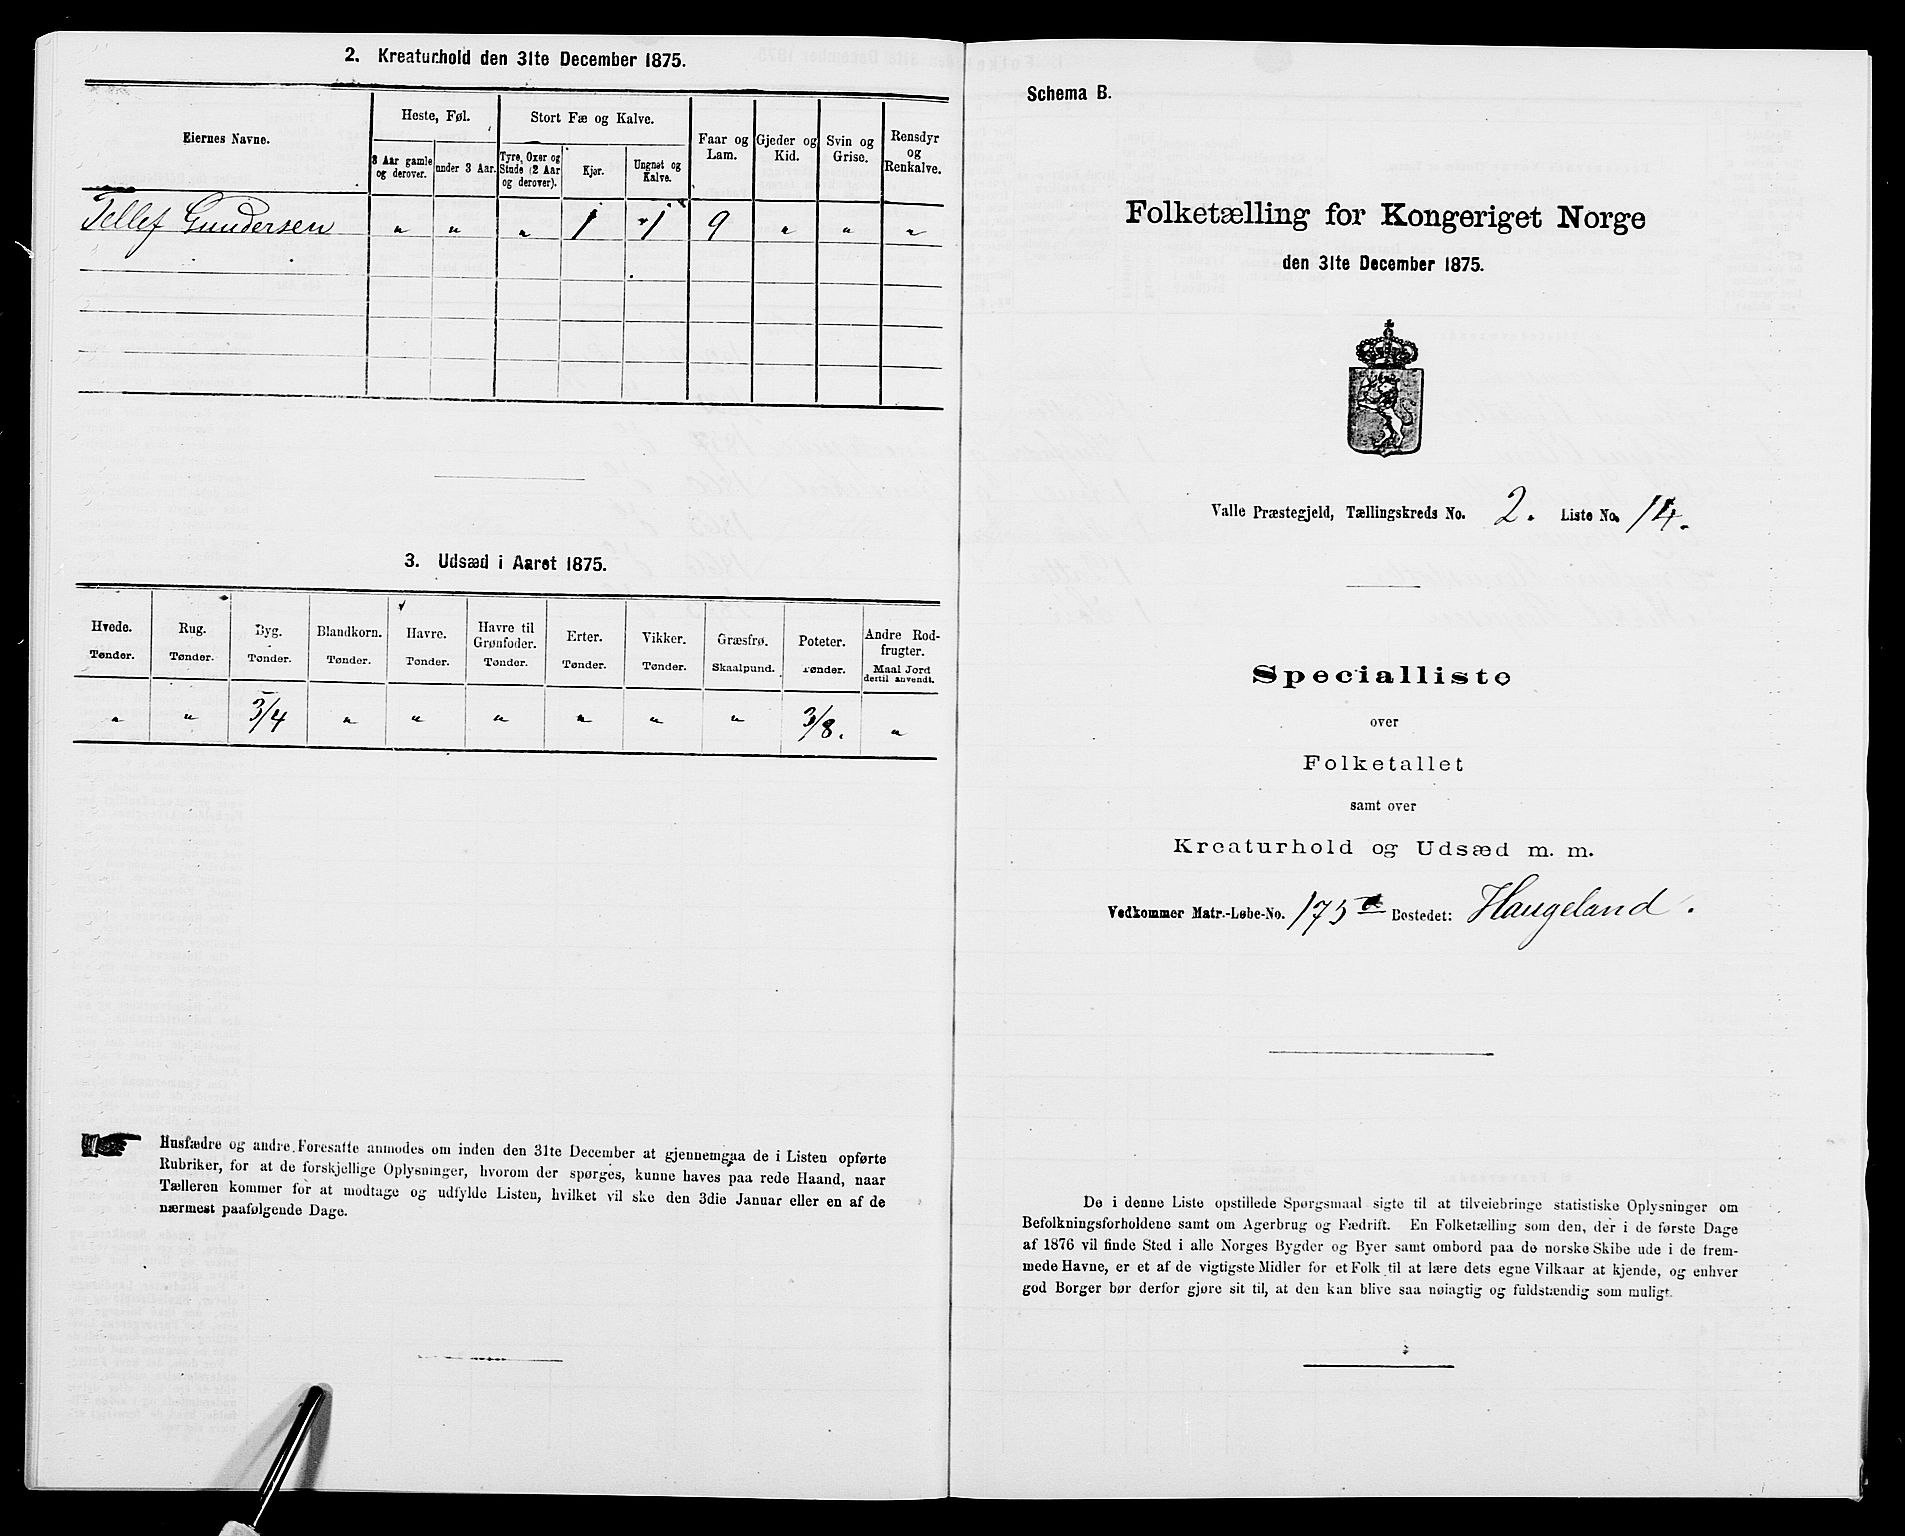 2. Kreaturhold den 31te December 1875.
Eiernes Navne.
Heste, Føl.
3 Aar gamle og derover.
under 3 Aar.
Stort Fæ og Kalve.
Tyre, Oxer og Stude (2 Aar og derover).
Kjør.
Ungnøt og Kalve.
Faar og Lam.
Gjeder og Kid.
Svin og Grise.
Rensdyr og Renkalve.
Tellef Gundersen " " " 1 1 9 " " "
3. Udsæd i Aaret 1875.
Hvede. Rug. Byg. Blandkorn. Havre. Havre til Grønfoder. Erter. Vikker. Græsfrø. Poteter. Andre Rodfrugter.
Tønder. Tønder. Tønder. Tønder. Tønder. Tønder. Tønder. Tønder. Skaalpund. Tønder. Maal Jord dertil anvendt.
" " 3/4 " " " " " " 3/8. "
Husfædre og andre Foresatte anmodes om inden den 31te December at gjennemgaa de i Listen opførte
Rubriker, for at de forskjellige Oplysninger, hvorom der spørges, kunne haves paa rede Haand, naar
Tælleren kommer for at modtage og udfylde Listen, hvilket vil ske den 3die Januar eller en af de
nærmest paafølgende Dage.
Schema B.
Folketælling for Kongeriget Norge
den 31te December 1875.
Valle Præstegjeld, Tællingskreds No. 2. Liste No. 14.
Specialliste
over
Folketallet
samt over
Kreaturhold og Udsæd m. m.
Vedkommer Matr.-Løbe-No. 175 d Bostedet: Haugeland.
De i denne Liste opstillede Spørgsmaal sigte til at tilveiebringe statistiske Oplysninger om
Befolkningsforholdene samt om Agerbrug og Fædrift. En Folketælling som den, der i de første Dage
af 1876 vil finde Sted i alle Norges Bygder og Byer samt ombord paa de norske Skibe ude i de frem-
mede Havne, er et af de vigtigste Midler for et Folk til at lære dets egne Vilkaar at kjende, og enhver
god Borger bør derfor gjøre sit til, at den kan blive saa nøiagtig og fuldstændig som muligt.